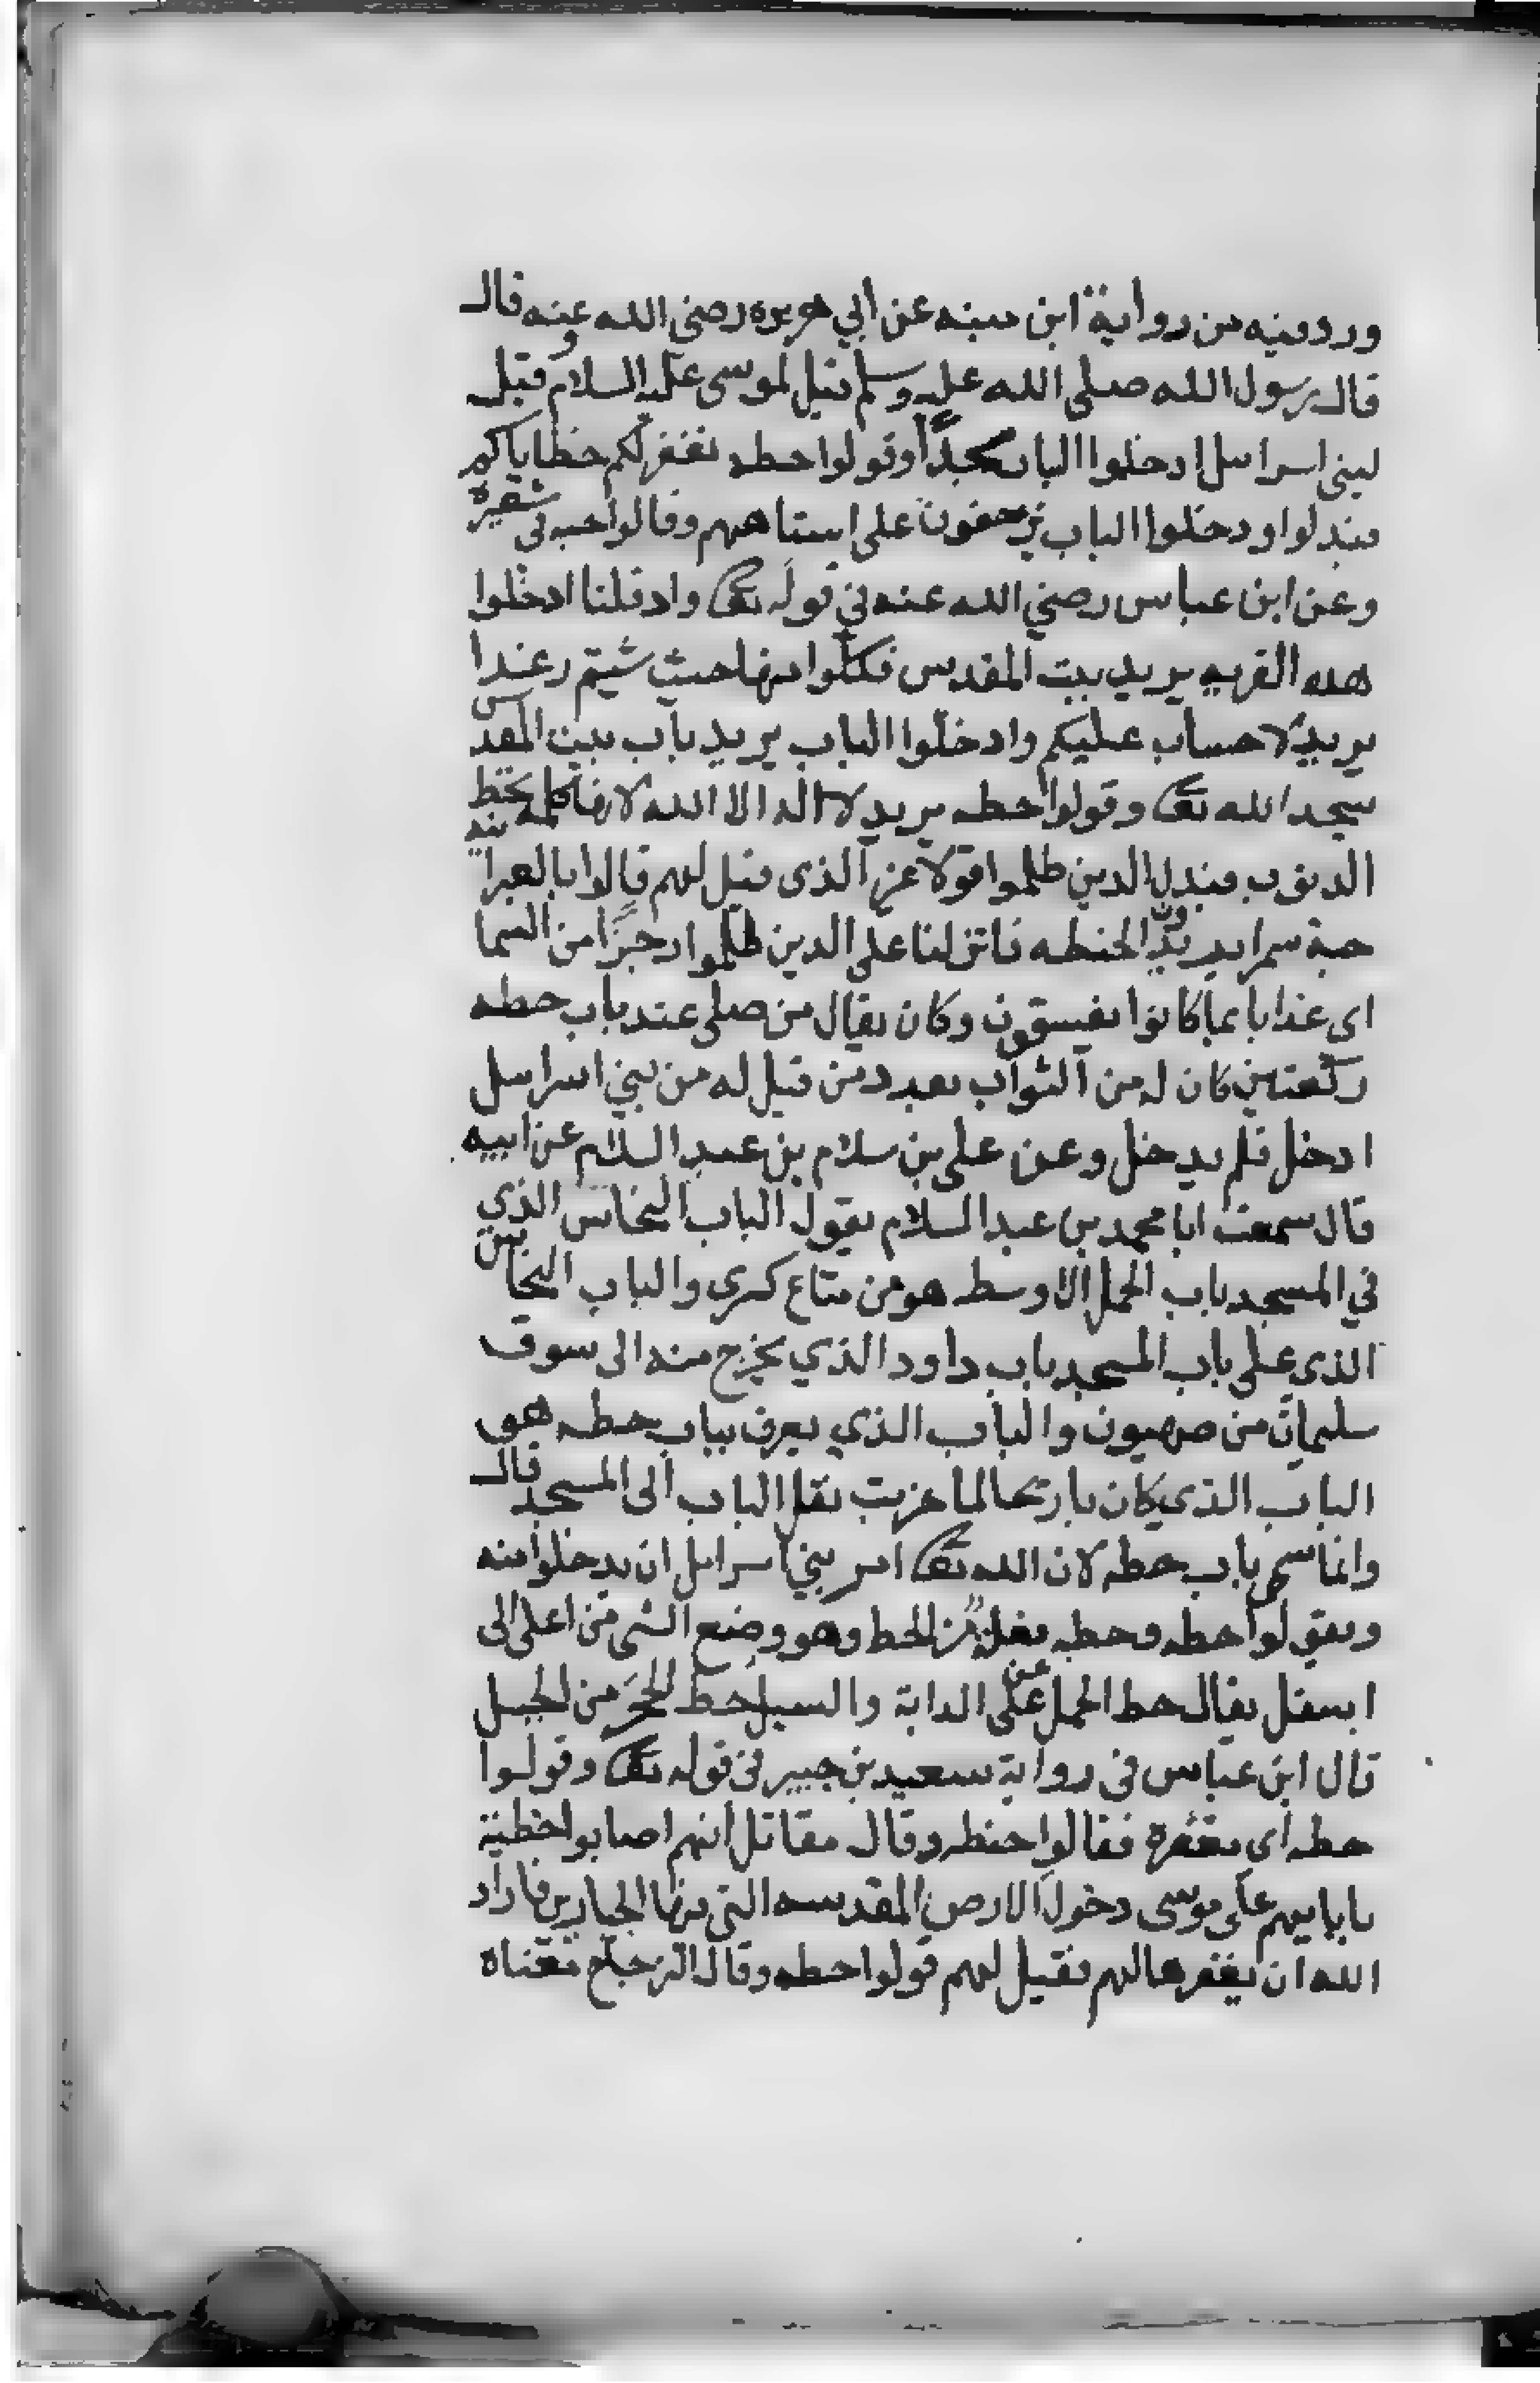 ورد فيه من رواية ابن منبه عن أبي هريره رضى الله عنه قال
قال رسول الله صلى الله عليه وسلم قيل لموسى عليه السلام وقيل
لبنى اسرايل ادخلوا الباب سجدًا وقولوا حطه نغفر لكم خطاياكم
فبدلوا ودخلوا الباب يزحفون على استاههم وقالوا حبه في شعيرة
وعن ابن عباس رضي الله عنه في قوله تعالى واد قلنا ادخلوا
هده القريه يريد بيت المقدس فكلوا منها حيث شيتم رغدا
يريد لا حساب عليكم وادخلوا الباب يريد باب بيت المقدس
سجدا لله تعالى وقولوا حطه يريد لا اله الا الله لانها كلمه تحط
الدنوب فبدل الدين ظلموا قولا غير الذى قيل لهم قالوا بالعبرانيه
حبة سمرا يريدون الحنطه فانزلنا على الدين ظلموا رجزًا من السما
اى عذابا بما كانوا يفسقون وكان يقال من صلى عند باب حطه
ركعتين كان له من الثواب بعدد من قيل له من بني اسرايل
ادخل فلم يدخل وعن على بن سلام بن عبد السلام عن ابيه
قال سمعت ابا محمد بن عبد السلام يقول الباب النحاس الذي
في المسجد باب الحمل الاوسط هو من متاع كسرى والباب النحاس
الذى على باب المسجد باب داود الذي يخرج منه الى سوق
سليمان من صهيون والباب الذي يعرف بباب حطه هو
الباب الذي كان باريحا لما خربت نقل الباب الى المسجد قال
وانما سمى باب حطه لان الله تعالى امر بني اسرايل ان يدخلوا منه
ويقولوا حطه وحطه فعلة من الحط وهو وضع الشى من اعلى الى
اسفل يقال حط الحمل عن الدابة والسيل حط الحجر من الجبل
قال ابن عباس فى رواية سعيد بن جبير فى قوله تعالى وقولوا
حطه اى مغفرة فقالوا حنطه وقال مقاتل انهم اصابوا خطية
بابايهم على موسى دخول الارض المقدسه التى فيها الجبارين فاراد
الله ان يغفرها لهم فقيل لهم قولوا حطه وقال الزجاج معناه